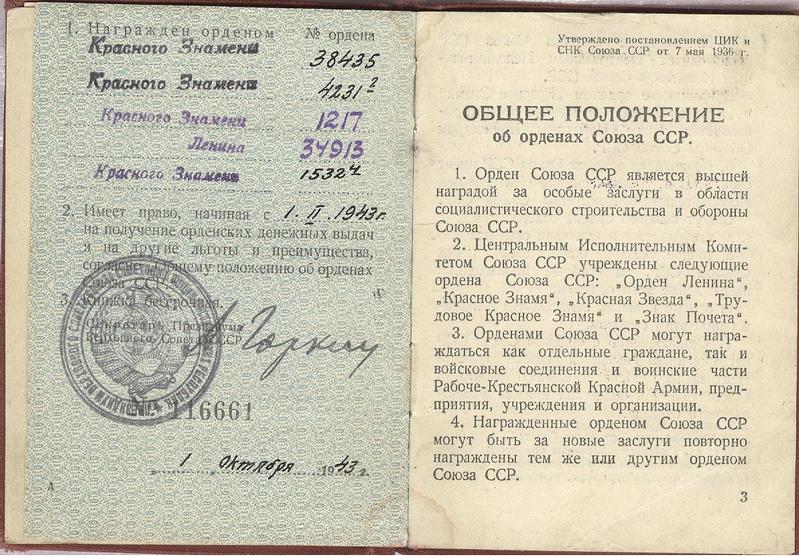 1. Награжден орденом № ордена
Красного Знамени 38435
Красного Знамени 4231²
Красного Знамени 1217
Ленина 34913
Красного Знамени 1532⁴
2. Имеет право, начиная с 1. II. 1943г.
на получение орденских денежных выдач
и на другие льготы и преимущества,
согласно общему положению об орденах
Союза ССР.
3. Книжка бессрочная.
Секретарь Президиума
Верховного Совета СССР
А Горкин
№ 116661
1 Октября 1943 г.
А
Утверждено постановлением ЦИК и
СНК Союза ССР от 7 мая 1936 г.
ОБЩЕЕ ПОЛОЖЕНИЕ
об орденах Союза ССР.
1. Орден Союза ССР является высшей
наградой за особые заслуги в области
социалистического строительства и обороны
Союза ССР.
2. Центральным Исполнительным Коми-
тетом Союза ССР учреждены следующие
ордена Союза ССР: „Орден Ленина",
„Красное Знамя", „Красная Звезда", „Тру-
довое Красное Знамя" и „Знак Почета".
3. Орденами Союза ССР могут награ-
ждаться как отдельные граждане, так и
войсковые соединения и воинские части
Рабоче-Крестьянской Красной Армии, пред-
приятия, учреждения и организации.
4. Награжденные орденом Союза ССР
могут быть за новые заслуги повторно
награждены тем же или другим орденом
Союза ССР.
3